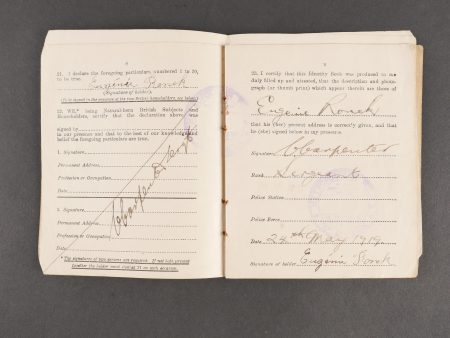 8
21. I declare the foregoing particulars, numbered 1 to 20,
to be true.
Eugénie Ronck
(Signature of holder).
(To be signed in the presence of the two British householders, see below.)
22. WE,* being Natural-born British Subjects and
Householders, certify that the declaration above was
signed by
in our presence and that to the best of our knowledge and
belief the foregoing particulars are true.
1. Signature
Permanent Address
Profession or Occupation
Date
2. Signature
Permanent Address
Profession or Occupation
Date
WCarpenter
* The signatures of two persons are required. If not help present
9
23. I certify that this Identity Book was produced to me
duly filled up and attested, that the description and photo-
graph (or thumb print) which appear therein are those of
Eugenie Ronck
that his (her) present address is correctly given, and that
he (she) signed below in my presence.
Signature WCarpenter
Rank Sergeant
Police Station
Police Force
Date 29th May 1919.
Signature of holder Eugénie Ronck